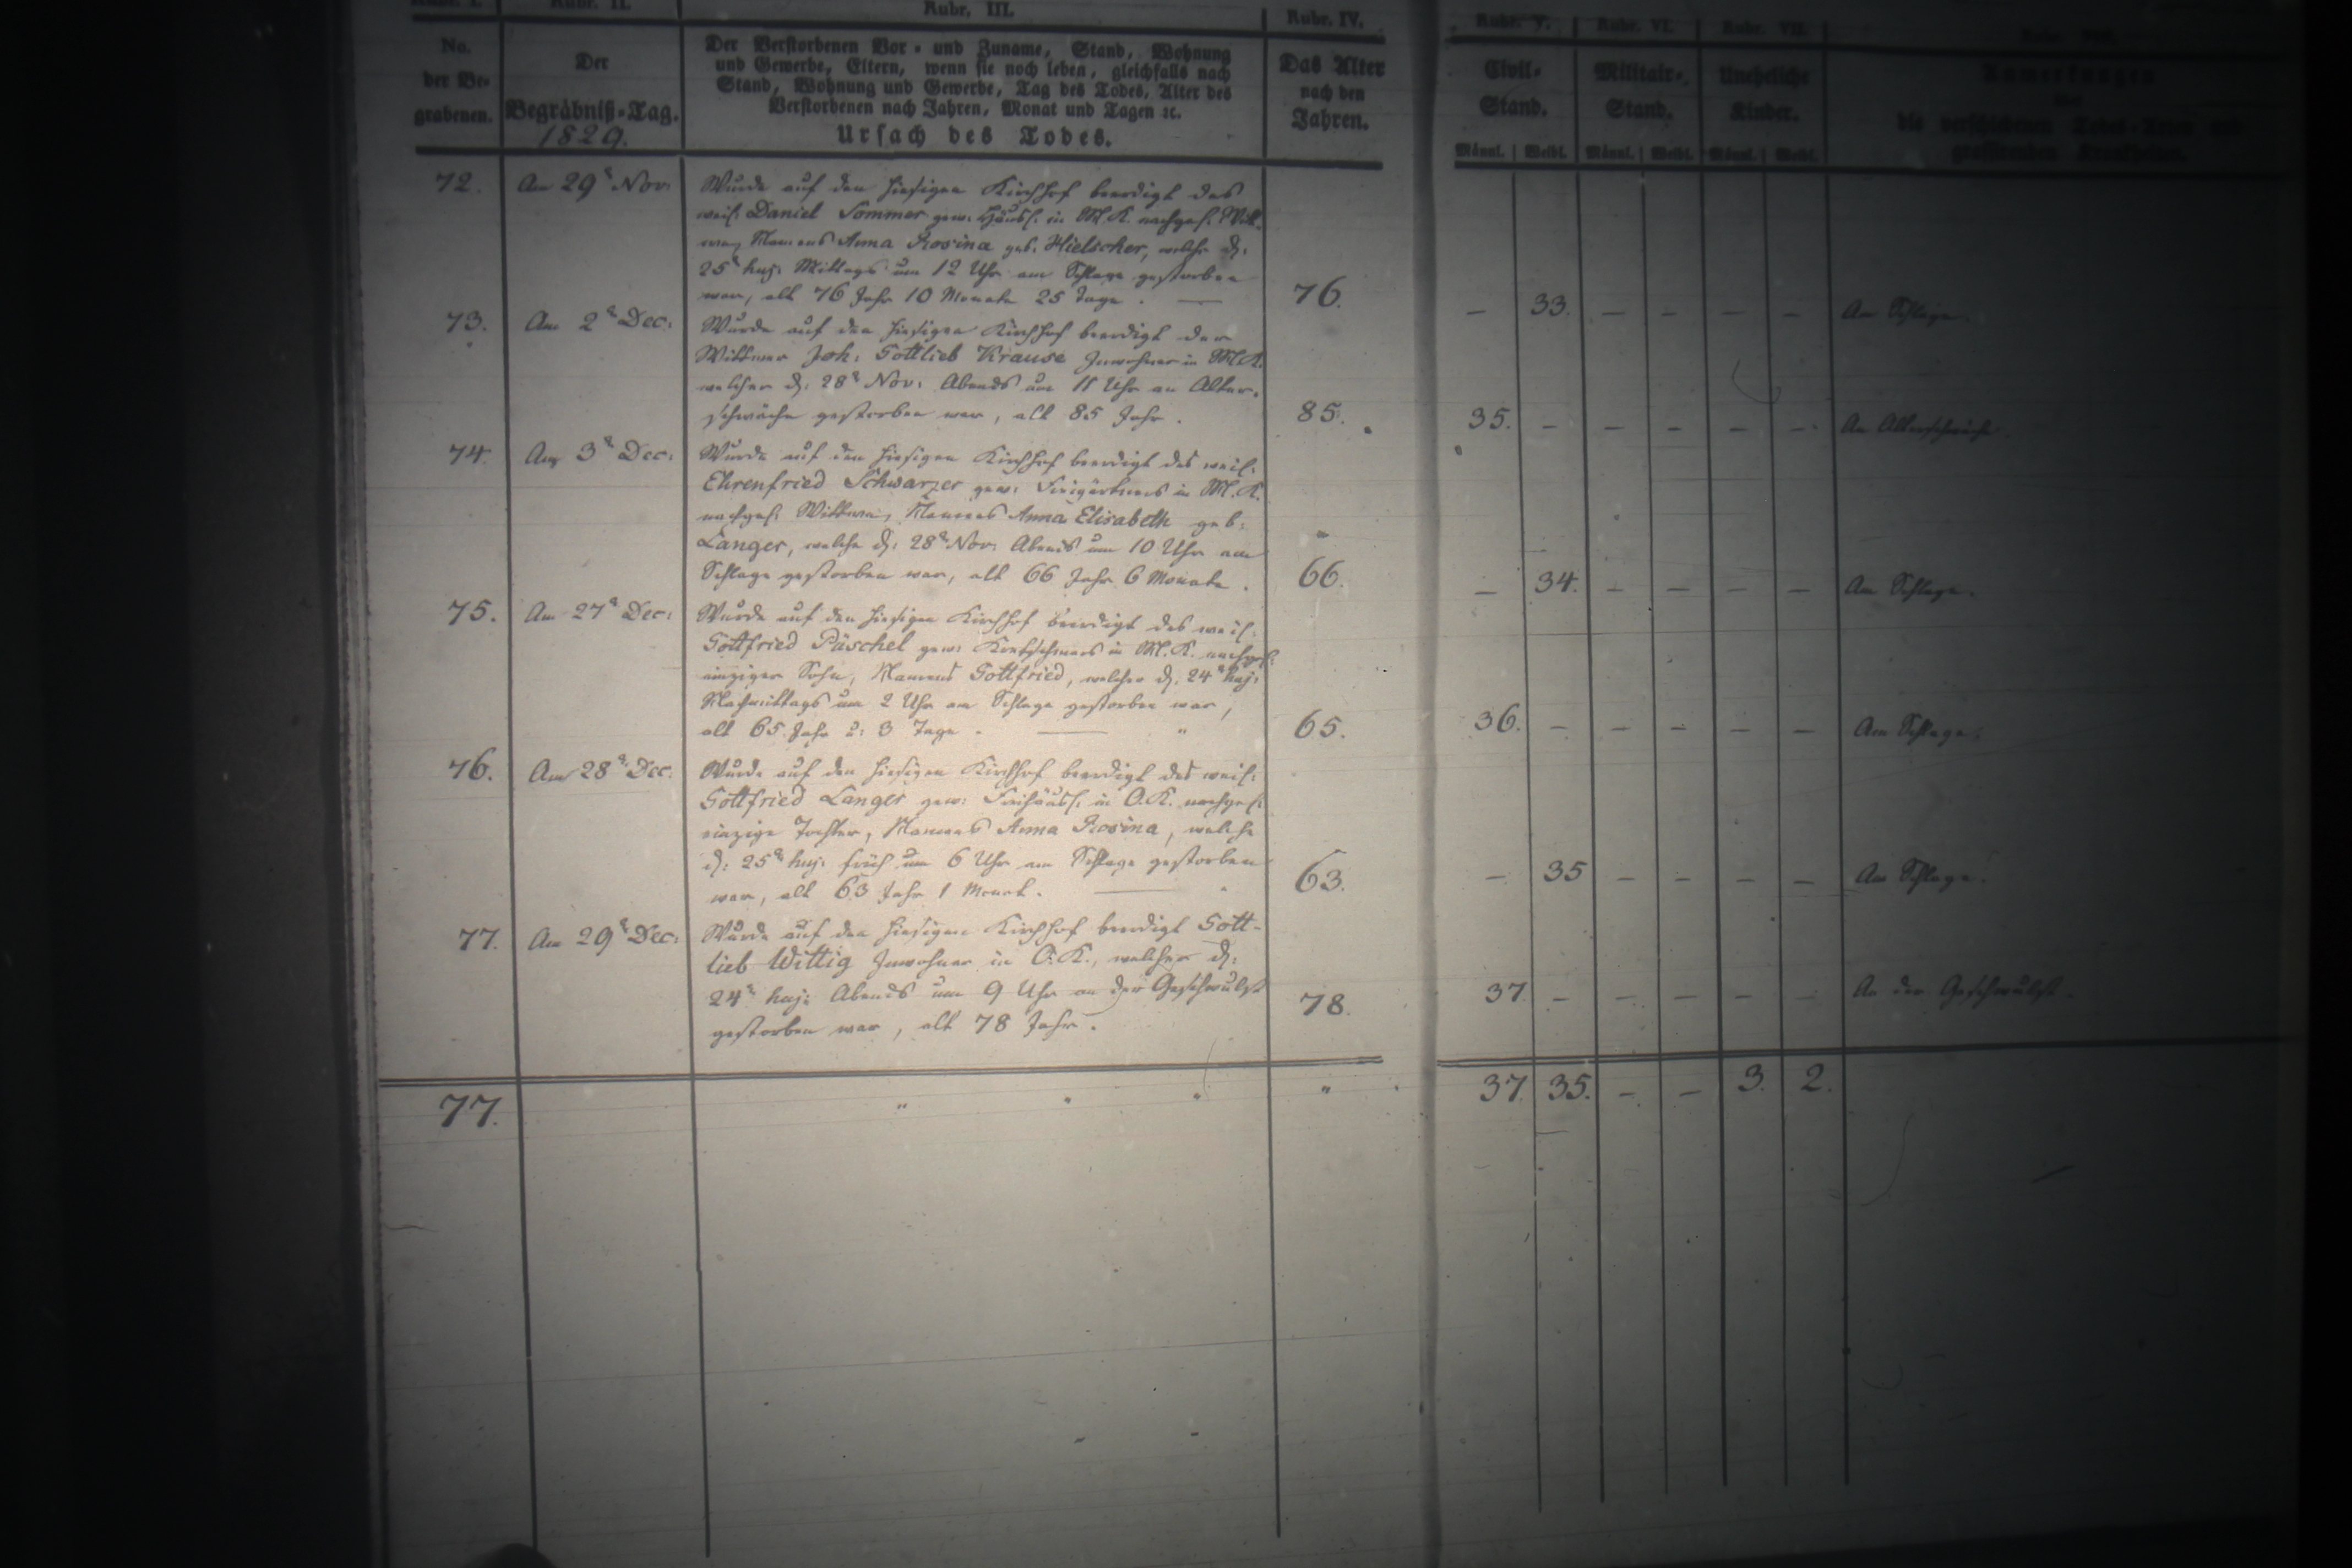 Rubr. I. Rubr. II. Rubr. III. Rubr. IV. Rubr. V. Rubr. VI. Rubr. VII.
No. der Be- grabenen.
Der Begräbniß-Tag. 1829.
Der Verstorbenen Vor- und Zuname, Stand, Wohnung
und Gewerbe, Eltern, wenn sie noch leben, gleichfalls nach
Stand, Wohnung und Gewerbe, Tag des Todes, Alter des
Verstorbenen nach Jahren, Monat und Tagen ꝛc.
Ursach des Todes.
Das Alter nach den Jahren.
Civil- Stand.
Militair- Stand.
Uneheliche Kinder.
Anmerkungen
die verschiedenen Todes-Arten und
grassirenden Krankheiten.
Männl. Weibl. Männl. Weibl. Männl. Weibl.
72. Am 29t Nov: Wurde auf den hiesigen Kirchhof beerdigt des
weil. Daniel Sommer gew. Häusl. in M.K. nachgel. Witt-
we, Namens Anna Rosina geb. Hielscher, welche d:
25t huj: Mittags um 12 Uhr am Schlage gestorben
war, alt 76 Jahr 10 Monate 25 Tage. — 76. — 33. — — — — Am Schlage.
73. Am 2t Dec: Wurde auf den hiesigen Kirchhof beerdigt der
Wittwer Joh: Gottlieb Krause Inwohner in M.K.
welcher d: 28t Nov: Abends um 11 Uhr an Alter-
schwäche gestorben war, alt 85 Jahr. 85. 35. — — — — — An Alterschwäche.
74. Am 3t Dec: Wurde auf den hiesigen Kirchhof beerdigt des weil:
Ehrenfried Schwarzer gew: Freigärtners in M.K.
nachgel: Wittwe, Namens Anna Elisabeth geb:
Langer, welche d: 28t Nov: Abends um 10 Uhr am
Schlage gestorben war, alt 66 Jahr 6 Monate. 66. — 34. — — — — Am Schlage.
75. Am 27t Dec: Wurde auf den hiesigen Kirchhof beerdigt des weil:
Gottfried Päschel gew: Kretschmers in M.K. nachgel:
einziger Sohn, Namens Gottfried, welcher d: 24t huj:
Nachmittags um 2 Uhr am Schlage gestorben war,
alt 65 Jahr u: 3 Tage. — 65. 36. — — — — — Am Schlage.
76. Am 28t Dec. Wurde auf den hiesigen Kirchhof beerdigt des weil:
Gottfried Langer gew: Freihäusl: in O.K. nachgel:
einzige Tochter, Namens Anna Rosina, welche
d: 25t huj: früh um 6 Uhr am Schlage gestorben
war, alt 63 Jahr 1 Monat. — 63. — 35 — — — — Am Schlage.
77. Am 29t Dec: Wurde auf den hiesigen Kirchhof beerdigt Gott-
lieb Wittig Inwohner in O.K., welcher d:
24t huj: Abends um 9 Uhr an der Geschwulst
gestorben war, alt 78 Jahr. 78. 37 — — — — — An der Geschwulst.
77. 37. 35. — — 3. 2.